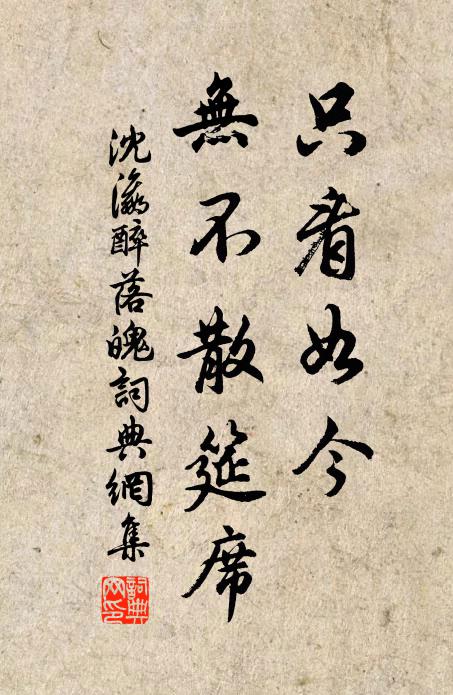 只看如今
無不散筵席
沈瀛醉落魄詞典網集
詞典網印